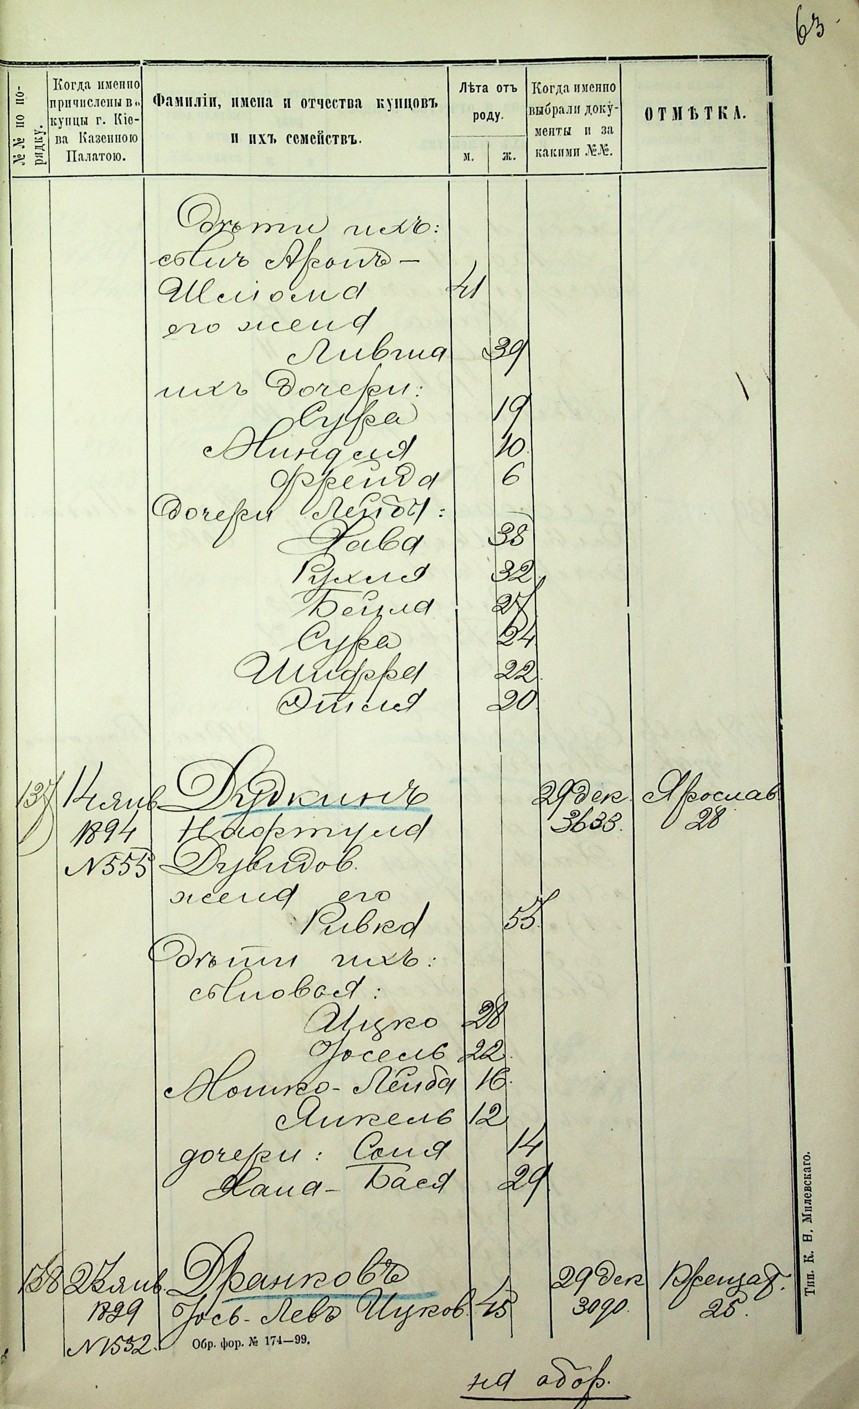 63
№№ по по-
рядку.
Когда именно
причислены в
купцы г. Кіе-
ва Казенною
Палатою.
Фамиліи, имена и отчества купцовъ
и ихъ семействъ.
Лѣта отъ
роду.
м. ж.
Когда именно
выбрали доку-
менты и за
какими №№.
ОТМѢТКА.
Дѣти ихъ:
сынъ Аронъ-
Шліома 41
его жена
Лившa 39
ихъ дочери:
Сура 19
Миндля 10
Фрейда 6
дочери Лейбы:
Хава 38
Рухля 32
Бейла 27
Сура 24
Шифра 22
Этля 20
137 14 янв. Дудкинъ 29 дек. Ярослав.
1894 Нафтула 3633. 28
№ 555 Дувидов.
жена его
Ривка 55
Дѣти ихъ:
сыновья:
Ицко 28
Іосель 22
Мошко-Лейба 16
Янкель 12
дочери: Соня 14
Хана-Бася 29
138 23 янв. Дранковъ 29 дек. Крещат.
1899 Іось-Левъ Ицков. 45 3090. 25.
№ 1532.
Обр. фор. № 174—99.
на обор.
Тип. К. Н. Милевскаго.